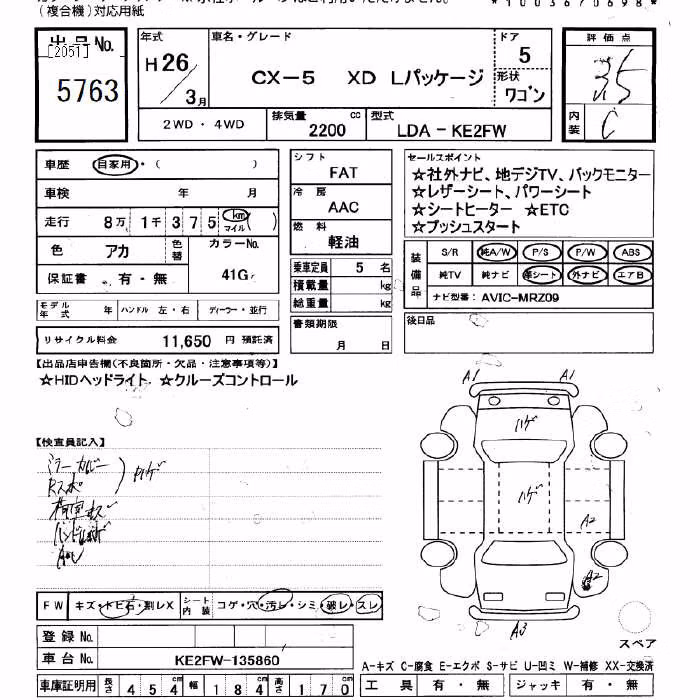 (複合機)対応用紙
*1003670698*
出品No.
[2051]
5763
年式
H26/3月
車名・グレード
CX-5 XD Lパッケージ
ドア
5
形状
ワゴン
評価点
3.5
内装
C
2WD・4WD
排気量
2200 cc
型式
LDA-KE2FW
車歴 自家用・( )
車検 年 月
走行 8万1千375 km マイル( )
色 アカ
色替
カラーNo.
41G
保証書 有・無
モデル年式 年 ハンドル 左・右 ディーラー・並行
リサイクル料金 11,650 円 預託済
シフト
FAT
冷房
AAC
燃料
軽油
乗車定員 5 名
積載量 kg
総重量 kg
書類期限
月 日
セールスポイント
☆社外ナビ、地デジTV、バックモニター
☆レザーシート、パワーシート
☆シートヒーター ☆ETC
☆プッシュスタート
装備品
S/R 純A/W P/S P/W ABS
純TV 純ナビ 革シート 外ナビ エアB
ナビ型番: AVIC-MRZ09
後日品
【出品店申告欄(不良箇所・欠品・注意事項等)】
☆HIDヘッドライト ☆クルーズコントロール
【検査員記入】
ミラーカバー
Rスポ
ハゲ
A1
A1
ハゲ
ハゲ
A2
A2
A3
スペア
FW キズ・トビ石・割レX
シート内装 コゲ・穴・汚レ・シミ・破レ・スレ
登録No.
車台No. KE2FW-135860
車庫証明用 長さ 454cm 幅 184cm 高さ 170cm
A-キズ C-腐食 E-エクボ S-サビ U-凹ミ W-補修 XX-交換済
工具 有・無 ジャッキ 有・無